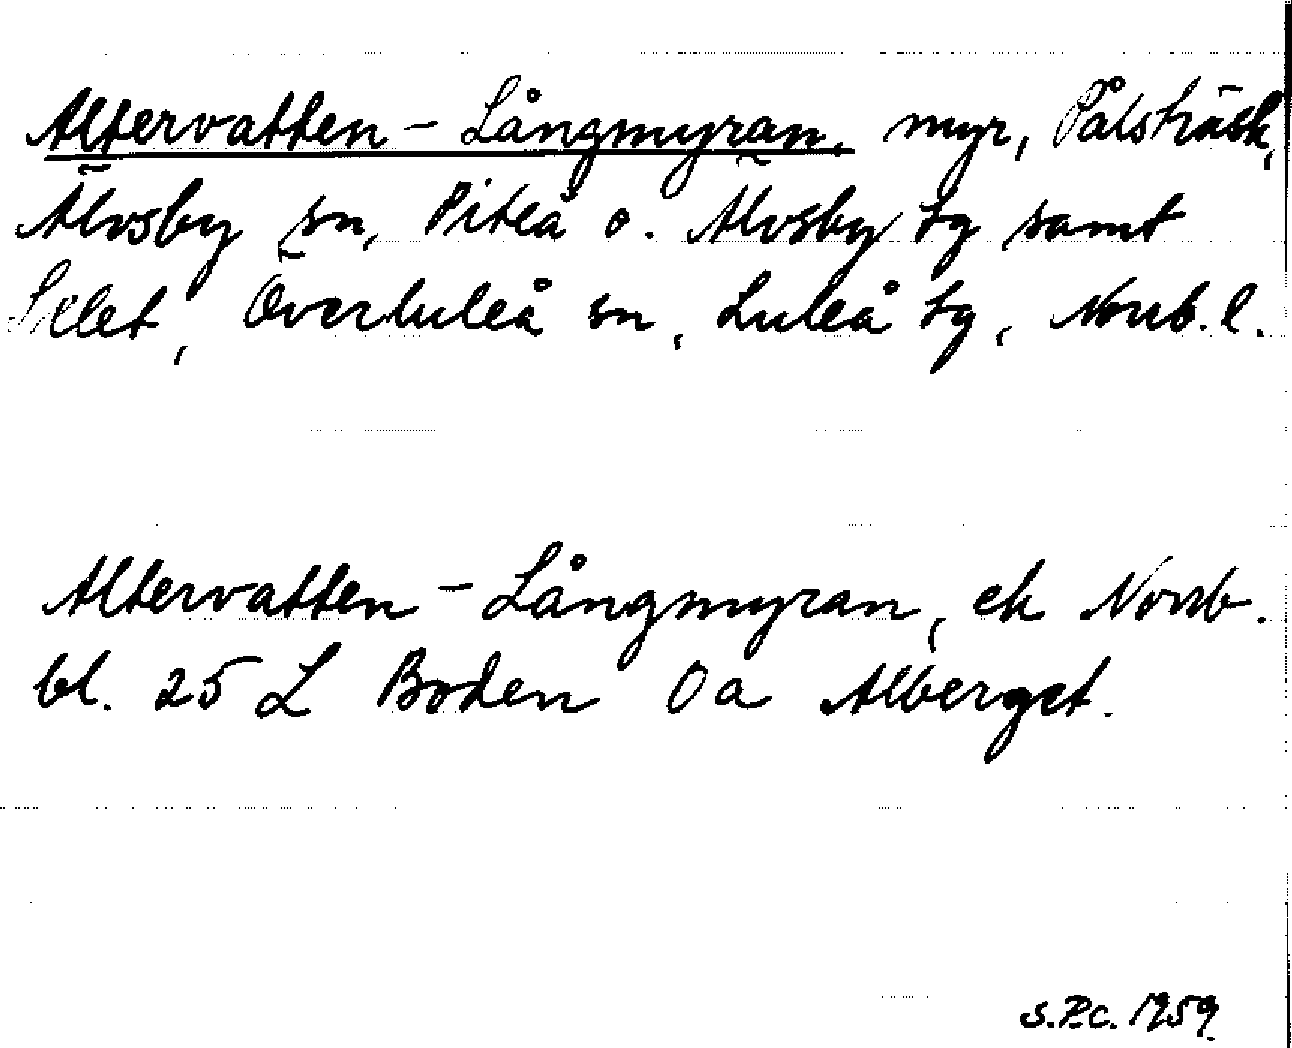 Altervatten - Långmyran, myr, Pålsträsk,
Älvsby sn, Piteå o. Älvsby tg samt
Selet, Överluleå sn, Luleå tg, Norrb. l.
Altervatten - Långmyran, ek Norrb.
bl. 25 L Boden 0a Alberget.
S.P.c. 1959.